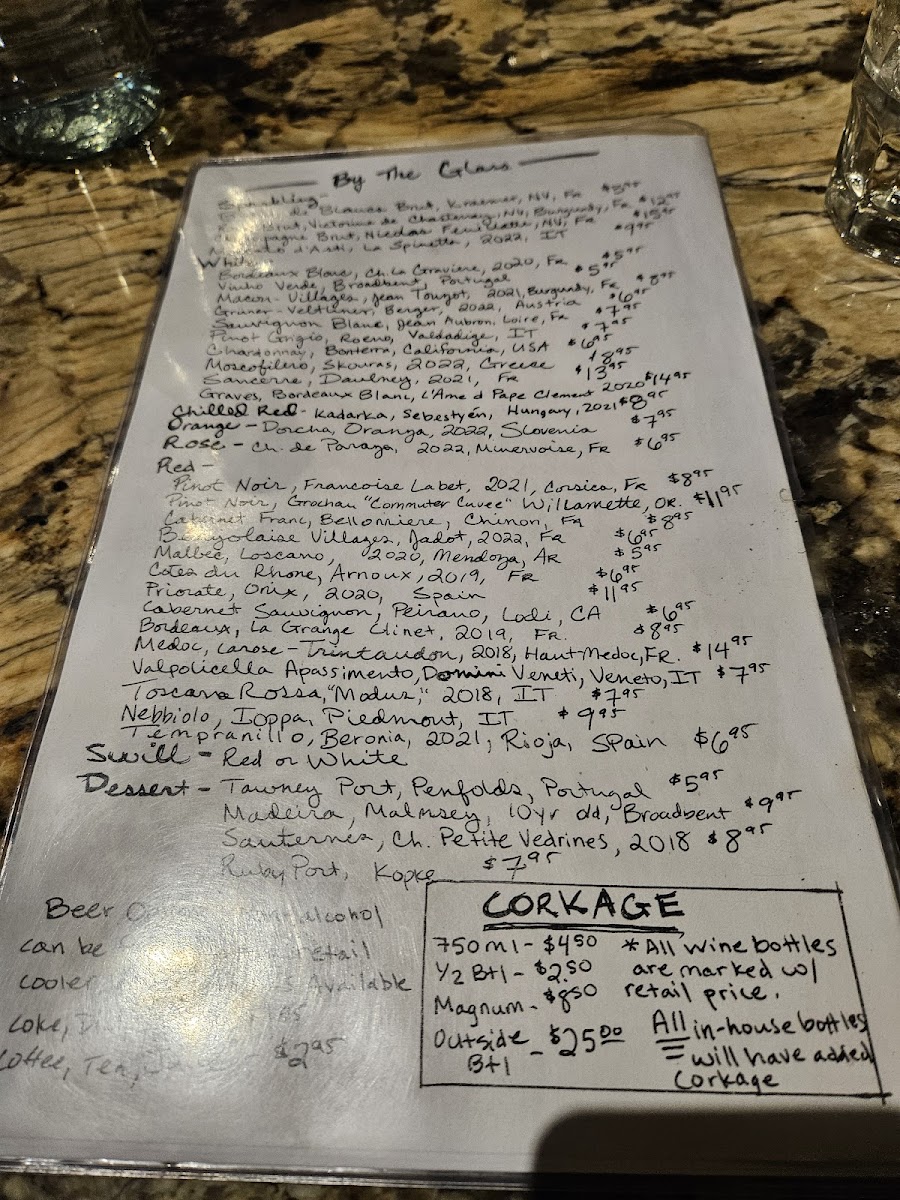 By The Glass
Sparkling
de Blancs Brut, Kraemer, NV, Fr $8.95
Brut, Victorine de Chastenay, NV, Burgundy, Fr $12.95
Champagne Brut, Nicolas Feuillatte, NV, Fr $15.95
d'Asti, La Spinetta, 2022, IT $9.95
White
Bordeaux Blanc, Ch. La Graviere, 2020, Fr $5.95
Vinho Verde, Broadbent, Portugal $5.95
Macon-Villages, Jean Touzot, 2021, Burgundy, Fr $8.95
Gruner-Veltliner, Berger, 2022, Austria $6.95
Sauvignon Blanc, Jean Aubron, Loire, Fr $7.95
Pinot Grigio, Roeno, Valdadige, IT $7.95
Chardonnay, Bonterra, California, USA $6.95
Moscofilero, Skouras, 2022, Greece $8.95
Sancerre, Daulney, 2021, FR $13.95
Graves, Bordeaux Blanc, L'Ame d Pape Clement 2020 $14.95
Chilled Red - Kadarka, Sebestyén, Hungary, 2021 $8.95
Orange - Dorcha, Oranza, 2022, Slovenia $7.95
Rosé - Ch. de Paraza, 2022, Minervoise, FR $6.95
Red -
Pinot Noir, Francoise Labet, 2021, Corsica, Fr $8.95
Pinot Noir, Grochau "Commuter Cuvee" Willamette, OR. $11.95
Cabernet Franc, Bellonniere, Chinon, FR $8.95
Beaujolaise Villages, Jadot, 2022, FR $6.95
Malbec, Loscano, 2020, Mendoza, AR $5.95
Cotes du Rhone, Arnoux, 2019, FR $6.95
Priorate, Onix, 2020, Spain $11.95
Cabernet Sauvignon, Peirano, Lodi, CA $6.95
Bordeaux, La Grange Clinet, 2019, FR. $8.95
Medoc, Larose-Trintaudon, 2018, Haut-Medoc, FR. $14.95
Valpolicella Apassimento, Domini Veneti, Veneto, IT $7.95
Toscana Rossa, "Modus," 2018, IT $7.95
Nebbiolo, Ioppa, Piedmont, IT $9.95
Tempranillo, Beronia, 2021, Rioja, Spain $6.95
Swill - Red or White
Dessert - Tawney Port, Penfolds, Portugal $5.95
Madeira, Malmsey, 10yr old, Broadbent $9.95
Sauternes, Ch. Petite Vedrines, 2018 $8.95
Ruby Port, Kopke $7.95
Beer alcohol
can be retail
cooler Available
Coke,
Coffee, Tea, $2.95
CORKAGE
750ml - $4.50
1/2 Btl - $2.50
Magnum - $8.50
Outside Btl - $25.00
*All wine bottles
are marked w/
retail price.
All in-house bottles
will have added
corkage